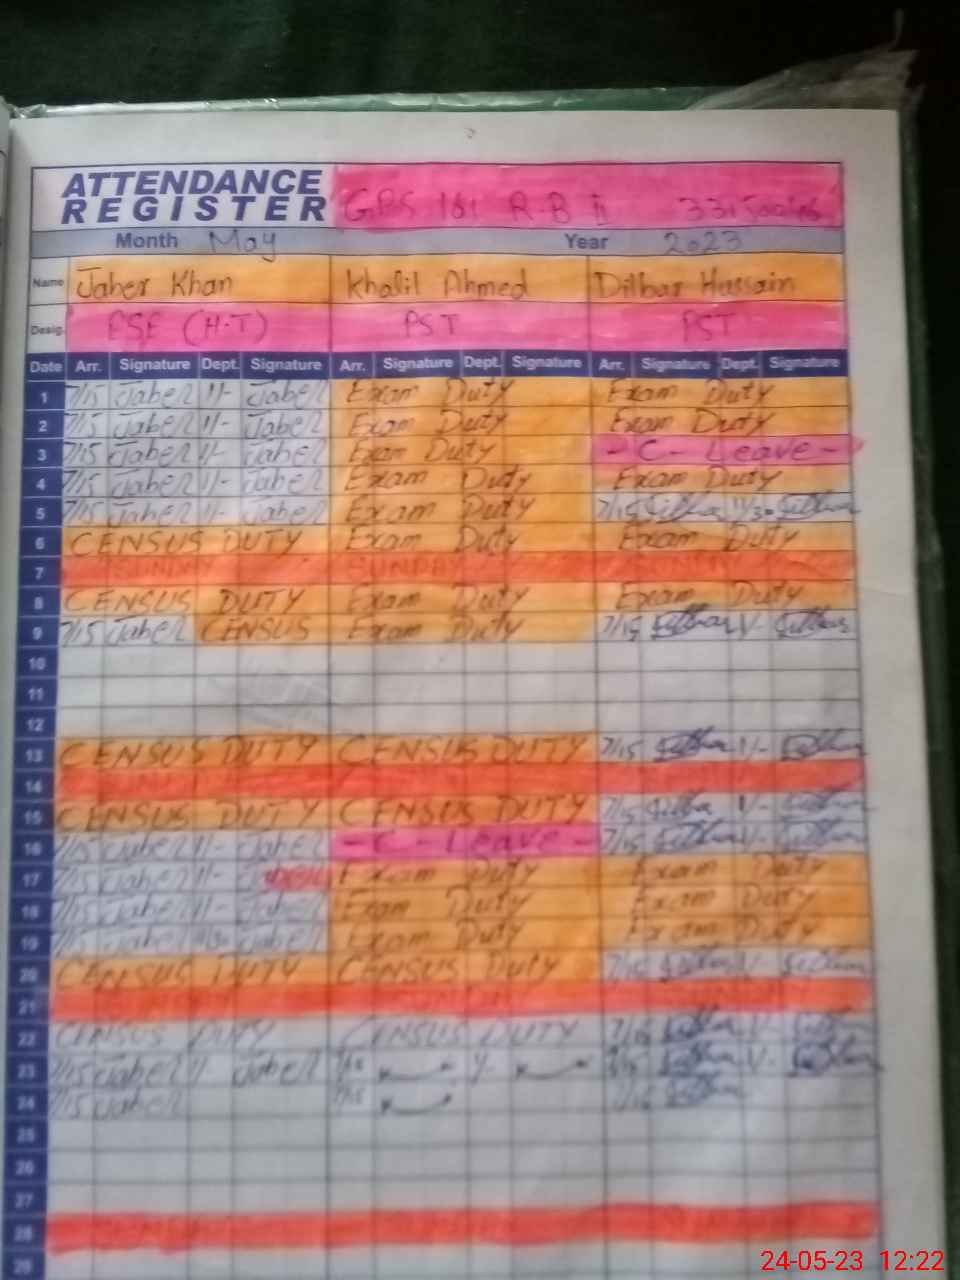 ATTENDANCE REGISTER GPS 161 R-B II
Month May Year 2023
Name Jaber Khan Khalil Ahmed Dilbar Hussain
Desig. PST PST
Date Arr. Signature Dept. Signature Arr. Signature Dept. Signature Arr. Signature Dept. Signature
1 7/15 Jaber 1/- Jaber Exam Duty Exam Duty
2 7/15 Jaber 1/- Jaber Exam Duty Exam Duty
3 7/15 Jaber 1/- Jaber Exam Duty - C - Leave -
4 7/15 Jaber 1/- Jaber Exam Duty Exam Duty
5 7/15 Jaber 1/- Jaber Exam Duty 7/15
6 CENSUS DUTY Exam Duty Exam Duty
7 SUNDAY SUNDAY SUNDAY
8 CENSUS DUTY Exam Duty Exam Duty
9 7/15 Jaber CENSUS Exam Duty 7/15 1/-
10
11
12
13 CENSUS DUTY CENSUS DUTY 7/15 1/-
14
15 CENSUS DUTY CENSUS DUTY 7/15 1/-
16 7/15 Jaber 1/- Jaber - C - Leave - 7/15 1/-
17 7/15 Jaber 1/- Exam Duty Exam Duty
18 7/15 Jaber 1/- Jaber Exam Duty Exam Duty
19 7/15 Jaber Jaber Exam Duty Exam Duty
20 CENSUS DUTY CENSUS Duty 7/15 1/-
21
22 CENSUS DUTY CENSUS DUTY 7/15 1/-
23 7/15 Jaber 1/- Jaber 7/15 1/- 7/15 1/-
24 7/15 Jaber 7/15 7/15
25
26
27
28
29
24-05-23 12:22